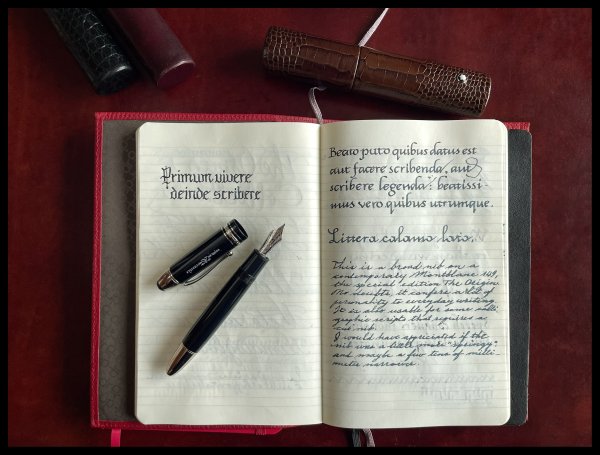 Primum vivere
deinde scribere
Beato puto quibus datus est
aut facere scribenda, aut
scribere legenda: beatissi-
mus vero quibus utrumque.
Littera calamo lato.
This is a broad nib on a
contemporary Montblanc 149,
the special edition The Origin.
No doubts, it confers a lot of
personality to everyday writing.
It is also usable for some calli-
graphic scripts that requires a
wide nib.
I would have appreciated if the
nib was a little more "springy"
and maybe a few tens of milli-
meter narrower.